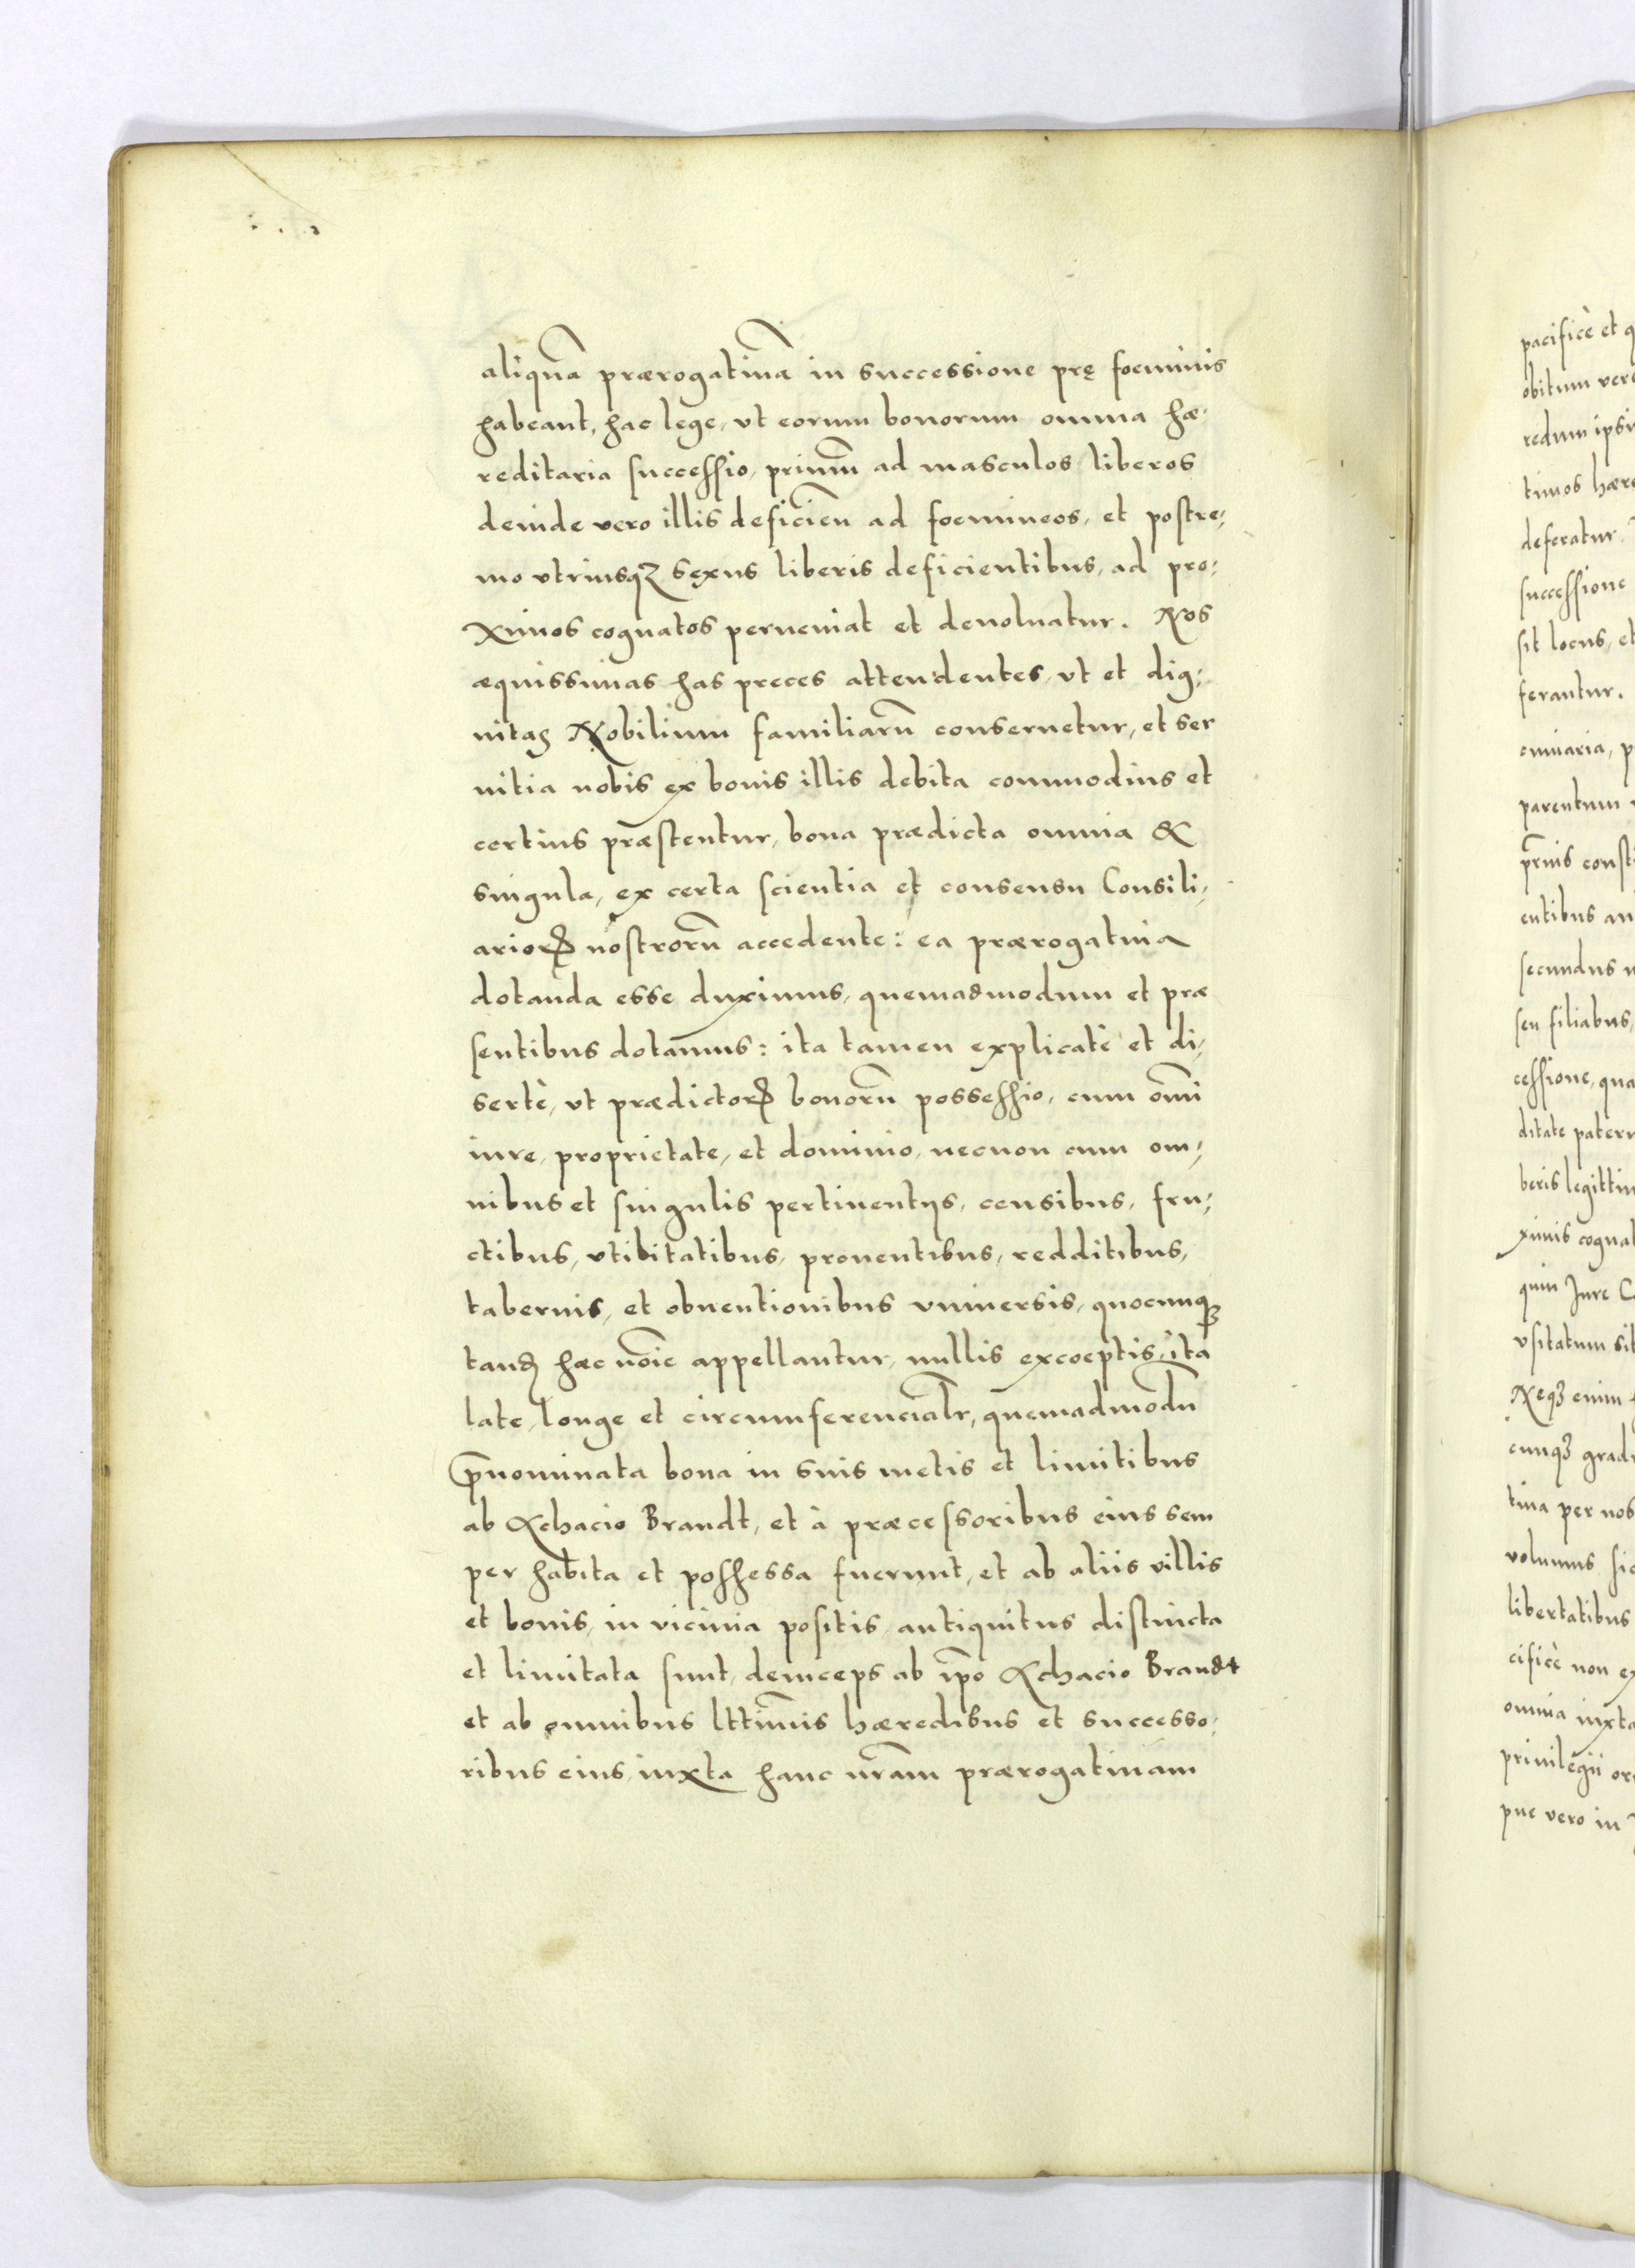 aliquã prærogatiuã in successione prę foeminis
habeant, hac lege, vt eorum bonorum omnia hæ-
reditaria successio, primũ ad masculos liberos
deinde vero illis deficien̄ ad foemineos, et postre-
mo vtriusqꝫ sexus liberis deficientibus, ad pro-
ximos cognatos perueniat et deuoluatur. Nos
æquissimas has preces attendentes, vt et dig-
nitas Nobilium familiarũ conseruetur, et ser
uitia nobis ex bonis illis debita commodius et
certius præstentur, bona prædicta omnia &
singula, ex certa scientia et consensu Consili-
arioꝝ nostrorũ accedente: ea prærogatiua
dotanda esse duximus, quemadmodum et præ
sentibus dotamus: ita tamen explicatè et di-
sertè, vt prædictoꝝ bonorũ possessio, cum oм̃i
iure, proprietate, et dominio, necnon cum om-
nibus et singulis pertinentijs, censibus, fru-
ctibus, vtibitatibus, prouentibus, redditibus,
tabernis, et obuentionibus vniuersis, quocunqꝫ
tandꝫ hæc noĩe appellantur, nullis excoeptis, ita
late, longe et circumferencialr̃, quemadmodũ
p̃nominata bona in suis metis et limitibus
ab Achacio Brandt, et à præcessoribus eius sem
per habita et possessa fuerunt, et ab aliis villis
et bonis, in vicinia positis, antiquitus distincta
et limitata sunt, deinceps ab ip̃o Achacio Brandt
et ab omnibus lttim̃is hæredibus et successo-
ribus eius, iuxta hanc nr̃am prærogatiuam
pacificè et q
obitum vero
redum ipsi
timos hære
deferatur.
successione
sit locus, et
ferantur.
parentum
p̃miis consti
entibus au
secundus
seu filiabus,
cessione, qua
ditate patern
beris legittim
ximis cognat
quin Jure C
vsitatum sit
Neqꝫ enim
cunqꝫ grad
tiua per nos
volumus, sic
libertatibus
cificè non ex
omnia iuxta
priuilegii or
pue vero in